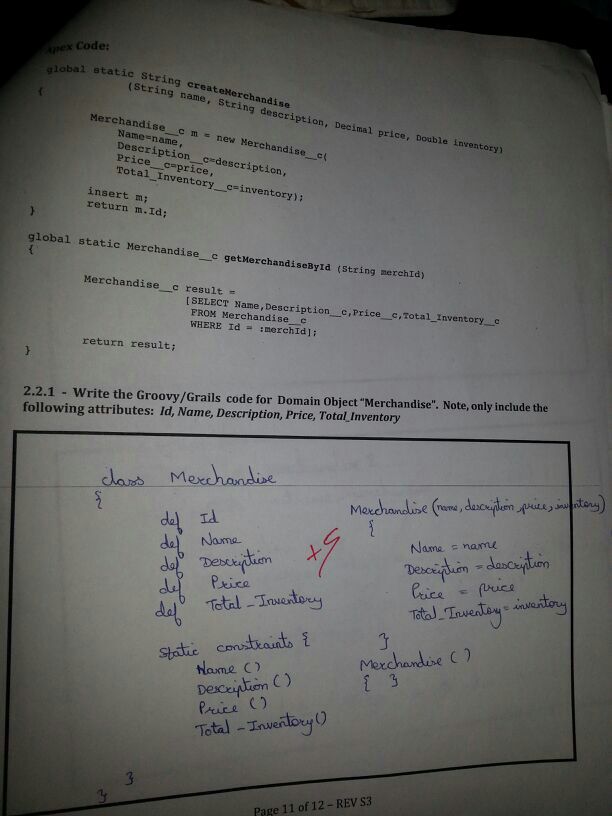 Apex Code:
global static String createMerchandise
(String name, String description, Decimal price, Double inventory)
{
Merchandise__c m = new Merchandise__c(
Name=name,
Description__c=description,
Price__c=price,
Total_Inventory__c=inventory);
insert m;
return m.Id;
}
global static Merchandise__c getMerchandiseById (String merchId)
{
Merchandise__c result =
[SELECT Name,Description__c,Price__c,Total_Inventory__c
FROM Merchandise__c
WHERE Id = :merchId];
return result;
}
2.2.1 - Write the Groovy/Grails code for Domain Object "Merchandise". Note, only include the
following attributes: Id, Name, Description, Price, Total_Inventory
class Merchandise
{
def Id
def Name
def Description
def Price
def Total_Inventory
static constraints {
Name ()
Description ()
Price ()
Total_Inventory()
}
}
+5
Merchandise (name, description, price, inventory)
{
Name = name
Description = description
Price = price
Total_Inventory = inventory
}
Merchandise ()
{ }
Page 11 of 12 – REV S3